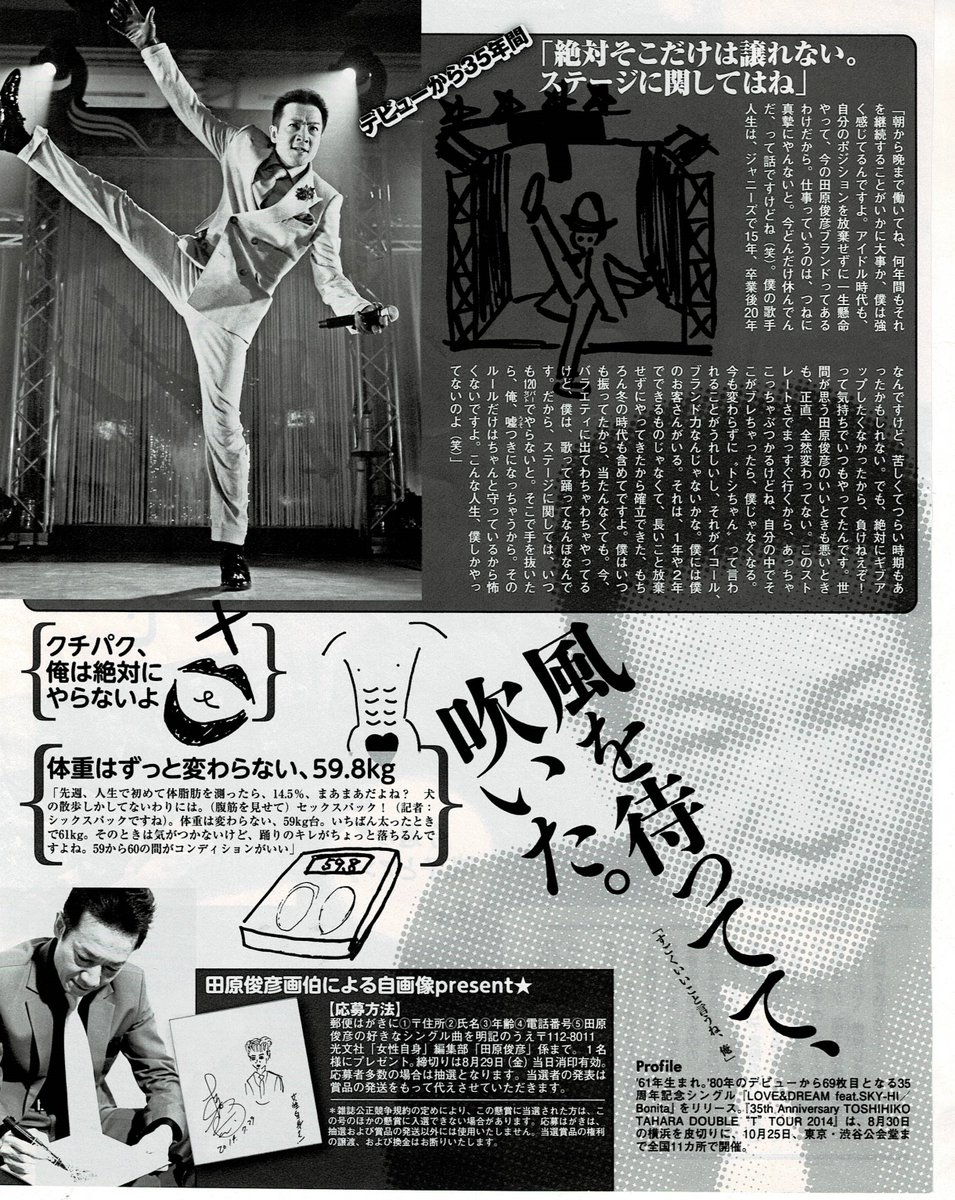 デビューから35年間
「絶対そこだけは譲れない。
ステージに関してはね」
「朝から晩まで働いてね、何年間もそれ
を継続することがいかに大事か、僕は強
く感じてるんですよ。アイドル時代も、
自分のポジションを放棄せずに一生懸命
やって、今の田原俊彦ブランドってある
わけだから。仕事っていうのは、つねに
真摯にやんないと。今どんだけ休んでん
だ、って話ですけどね（笑）。僕の歌手
人生は、ジャニーズで15年、卒業後20年
なんですけど、苦しくてつらい時期もあ
ったかもしれない。でも、絶対にギブア
ップしたくなかったから、負けねえぞ！
って気持ちでいつもやってたんです。世
間が思う田原俊彦のいいときも悪いとき
も、正直、全然変わってない。このスト
レートさでまっすぐ行くから、あっちゃ
こっちゃぶつかるけどね、自分の中でそ
こがブレちゃったら、僕じゃなくなる。
今も変わらずに〝トシちゃん〟って言わ
れることがうれしいし、それがイコール、
ブランド力なんじゃないかな。僕には僕
のお客さんがいる。それは、1年や2年
でできるものじゃなくて、長いこと放棄
せずにやってきたから確立できた、もち
ろん冬の時代も含めてですよ。僕はいつ
も振ってたから、当たんなくても。今、
バラエティに出てわちゃわちゃやってる
けど、僕は、歌って踊ってなんぼなんで
す。だから、ステージに関しては、いつ
も120㌫でやらないと。そこで手を抜いた
ら、俺、嘘つきになっちゃうから。その
ルールだけはちゃんと守っているから怖
くないですよ。こんな人生、僕しかやっ
てないのよ（笑）」
クチパク、
俺は絶対に
やらないよ
体重はずっと変わらない、59.8kg
「先週、人生で初めて体脂肪を測ったら、14.5％、まあまあだよね？　犬
の散歩しかしてないわりには。（腹筋を見せて）セックスパック！（記者：
シックスパックですね）。体重は変わらない、59kg台。いちばん太ったとき
で61kg。そのときは気がつかないけど、踊りのキレがちょっと落ちるんで
すよね。59から60の間がコンディションがいい」
59.8
風を待ってて、
吹いた。
「すごくいいこと言うね、俺」
田原俊彦画伯による自画像present★
【応募方法】
郵便はがきに①〒住所②氏名③年齢④電話番号⑤田原
俊彦の好きなシングル曲を明記のうえ〒112-8011
光文社「女性自身」編集部「田原俊彦」係まで。1名
様にプレゼント。締切りは8月29日（金）当日消印有効。
応募者多数の場合は抽選となります。当選者の発表は
賞品の発送をもって代えさせていただきます。
＊雑誌公正競争規約の定めにより、この懸賞に当選された方は、こ
の号のほかの懸賞に入選できない場合があります。応募はがきは、
抽選および賞品の発送以外には使用いたしません。当選賞品の権利
の譲渡、および換金はお断りいたします。
Profile
'61年生まれ。'80年のデビューから69枚目となる35
周年記念シングル『LOVE&DREAM feat.SKY-HI／
Bonita』をリリース。『35th Anniversary TOSHIHIKO
TAHARA DOUBLE "T" TOUR 2014』は、8月30日
の横浜を皮切りに、10月25日、東京・渋谷公会堂ま
で全国11カ所で開催。